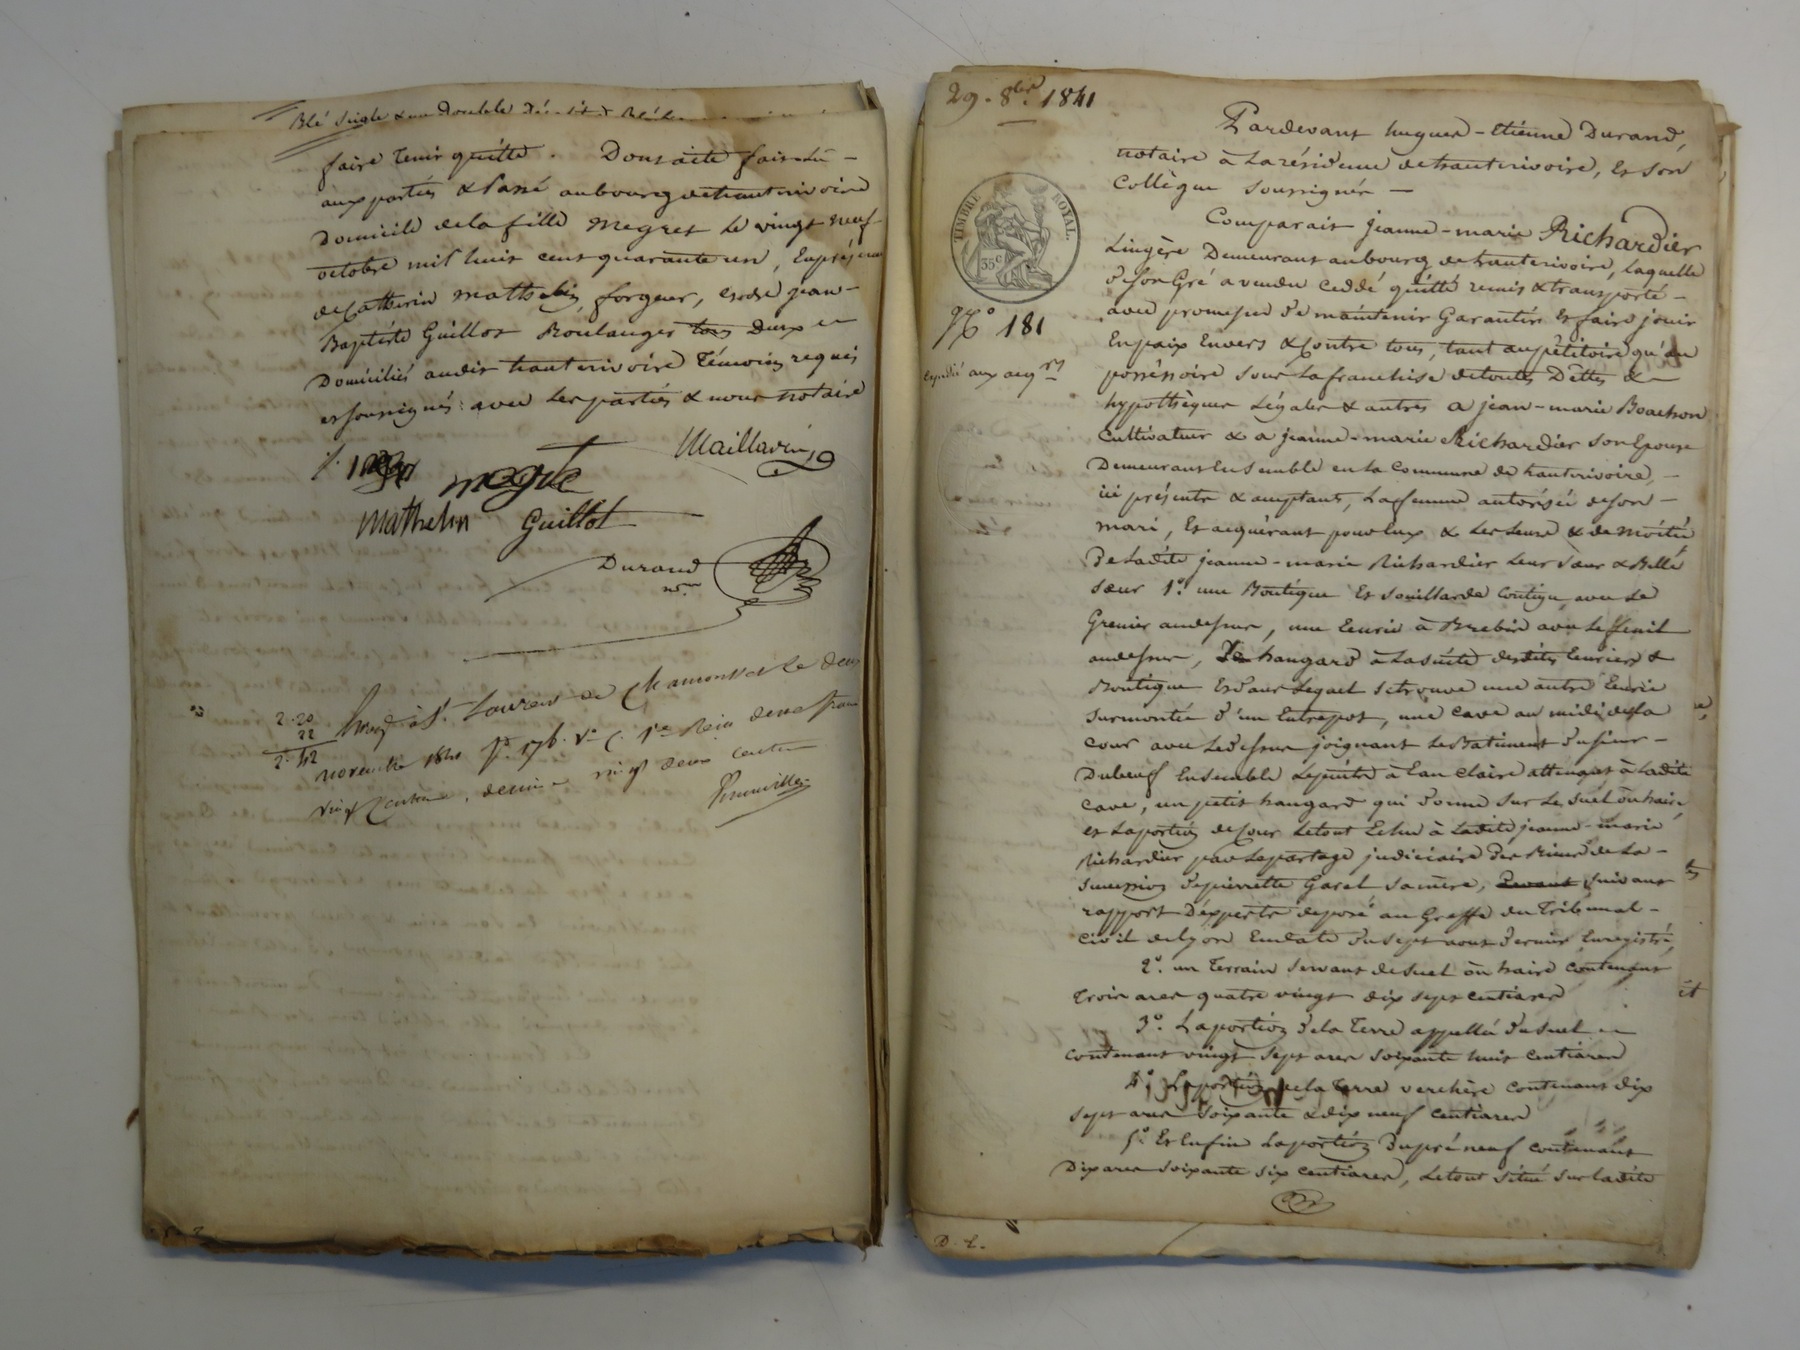 Blé Seigle & une Double
faire tenir quitte. Dont acte fait & lu -
aux parties & Passé au bourg de hauterivoire
Domicile de la fille Megret Le vingt neuf
octobre mil huit cent quarante un, En présence
de Catherin Mathelin, forgeur, et de jean-
Baptiste Guillot Boulanger tous Deux
Domiciliés audit hauterivoire Témoins requis
et soussignés avec les parties & nous notaire
Maillavin
Mathelin Guillot
Durand
nre
2.20
22
2.42
Enregé à St. Laurent de Chamousset le deux
novembre 1841 fo. 176 Vo C. 1re Reçu deux francs
vingt centimes, décime vingt deux centimes
29. 8bre. 1841
TIMBRE ROYAL.
35c
No 181
Expédié aux acqrs
Pardevant hugues-Etienne Durand,
notaire à La résidence de hauterivoire, Et Son
Collègue soussignés —
Comparait jeanne-marie Richardier
Lingère Demeurant au bourg de hauterivoire, Laquelle
de son Gré a vendu Ceddé quitté remis & transporté -
avec promesse de maintenir Garantir Et faire jouir
En paix Envers & Contre tous, tant au pétitoire qu'au
possessoire sous La franchise de toutes Dettes & -
hypothèques Légales & autres a jean-marie Boachon
Cultivateur & a jeanne-marie Richardier son Epouse
Demeurant Ensemble en La Commune de hauterivoire, -
ici présents & acceptants, La femme autorisée de son -
mari, Et acquérant pour Eux & Les Leurs & de moitié
De Ladite jeanne-marie Richardier Leur sœur & Belle
sœur 1o. une Boutique Et souillarde Contigue, avec Le
Grenier au dessus, une Ecurie à Brebis avec Le fenil
au dessus, Le hangard à La suite desdites Ecuries &
Boutique Et dans Lequel se trouve une autre Ecurie
surmontée d'un Entrepot, une cave au midi de La
cour avec Le dessus joignant Les Batiments du sieur -
Dubeuf Ensemble Le puits à Eau claire attenant à Ladite
Cave, un petit hangard qui donne sur Le suel ou haire,
et La portion de Cour Le tout Echu à Ladite jeanne-marie
Richardier par Le partage judiciaire De La -
succession de pierrette Garel sa mère, suivant
rapport D'experts déposé au Greffe du Tribunal -
civil de Lyon En date du sept aout dernier Enregistré,
2o. un Terrain servant de suel ou haire Contenant
Trois ares quatre vingt dix sept centiares
3o. La portion de la Terre appellée du suel
Contenant vingt sept ares soixante huit centiares
4o. La portion de la Terre verchère contenant dix
sept ares soixante & dix neuf centiares
5o. Et Enfin La portion Du pré neuf contenant
Dix ares soixante six centiares, Le tout situé sur Ladite
D. L.